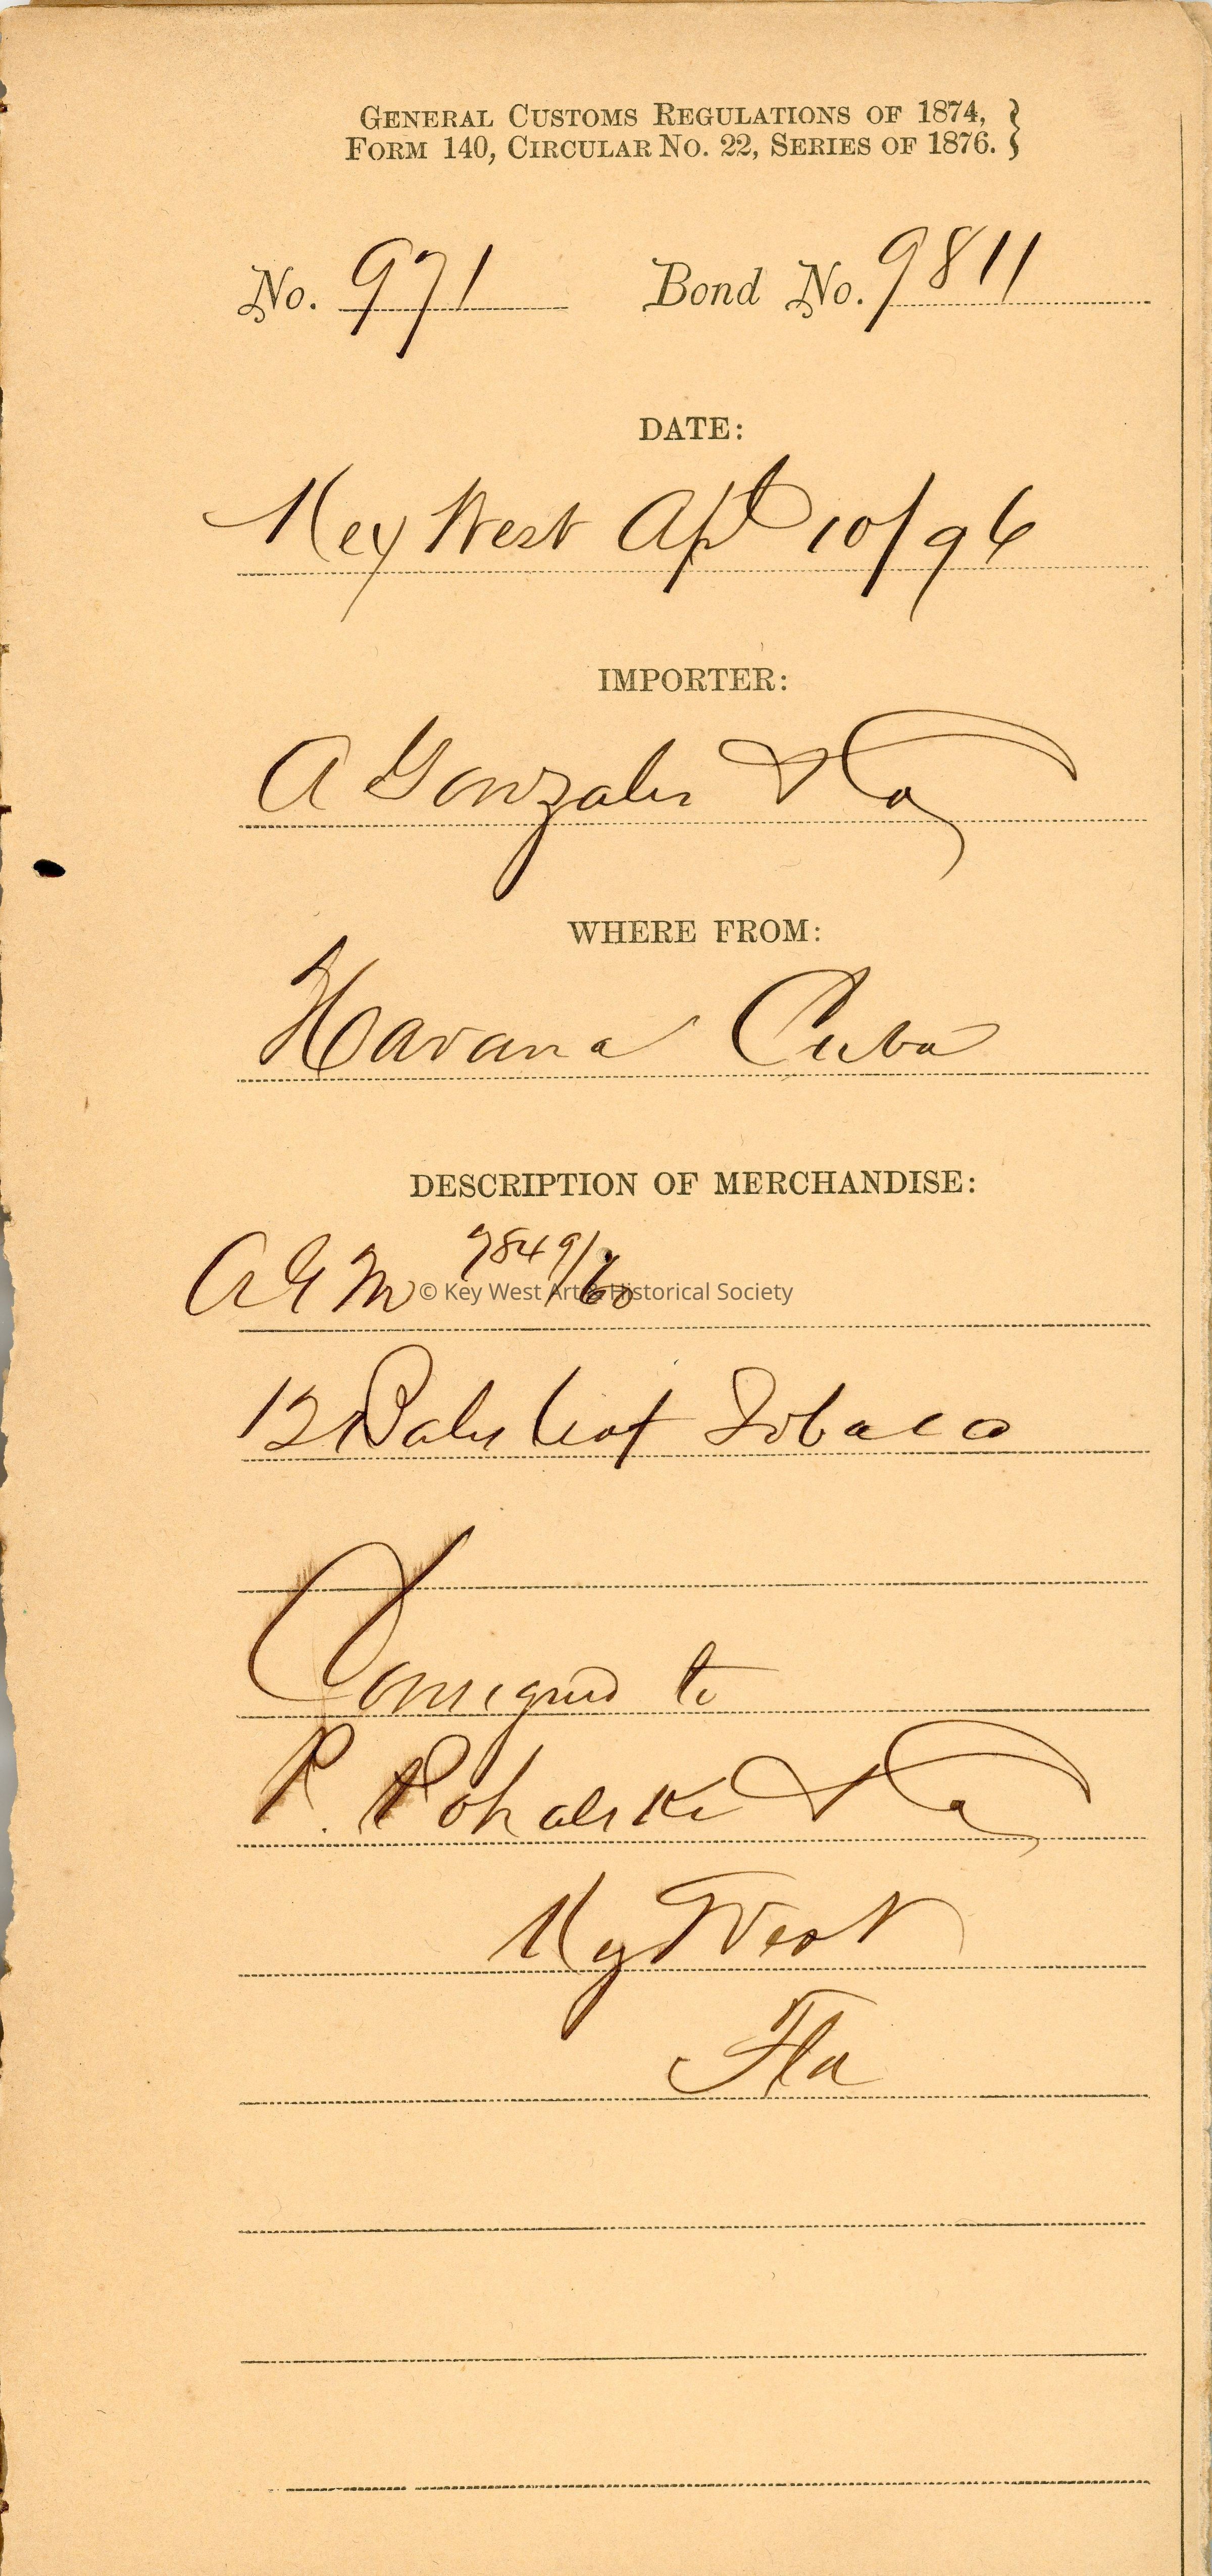 GENERAL CUSTOMS REGULATIONS OF 1874, }
FORM 140, CIRCULAR NO. 22, SERIES OF 1876. }
No. 971 Bond No. 9811
DATE:
Key West Apl 10/96
IMPORTER:
A Gonzales & Co
WHERE FROM:
Havana Cuba
DESCRIPTION OF MERCHANDISE:
A G M 9849/60
© Key West Art & Historical Society
12 Bales leaf Tobacco
Consigned to
P. Pohalski & Co
Key West
Fla